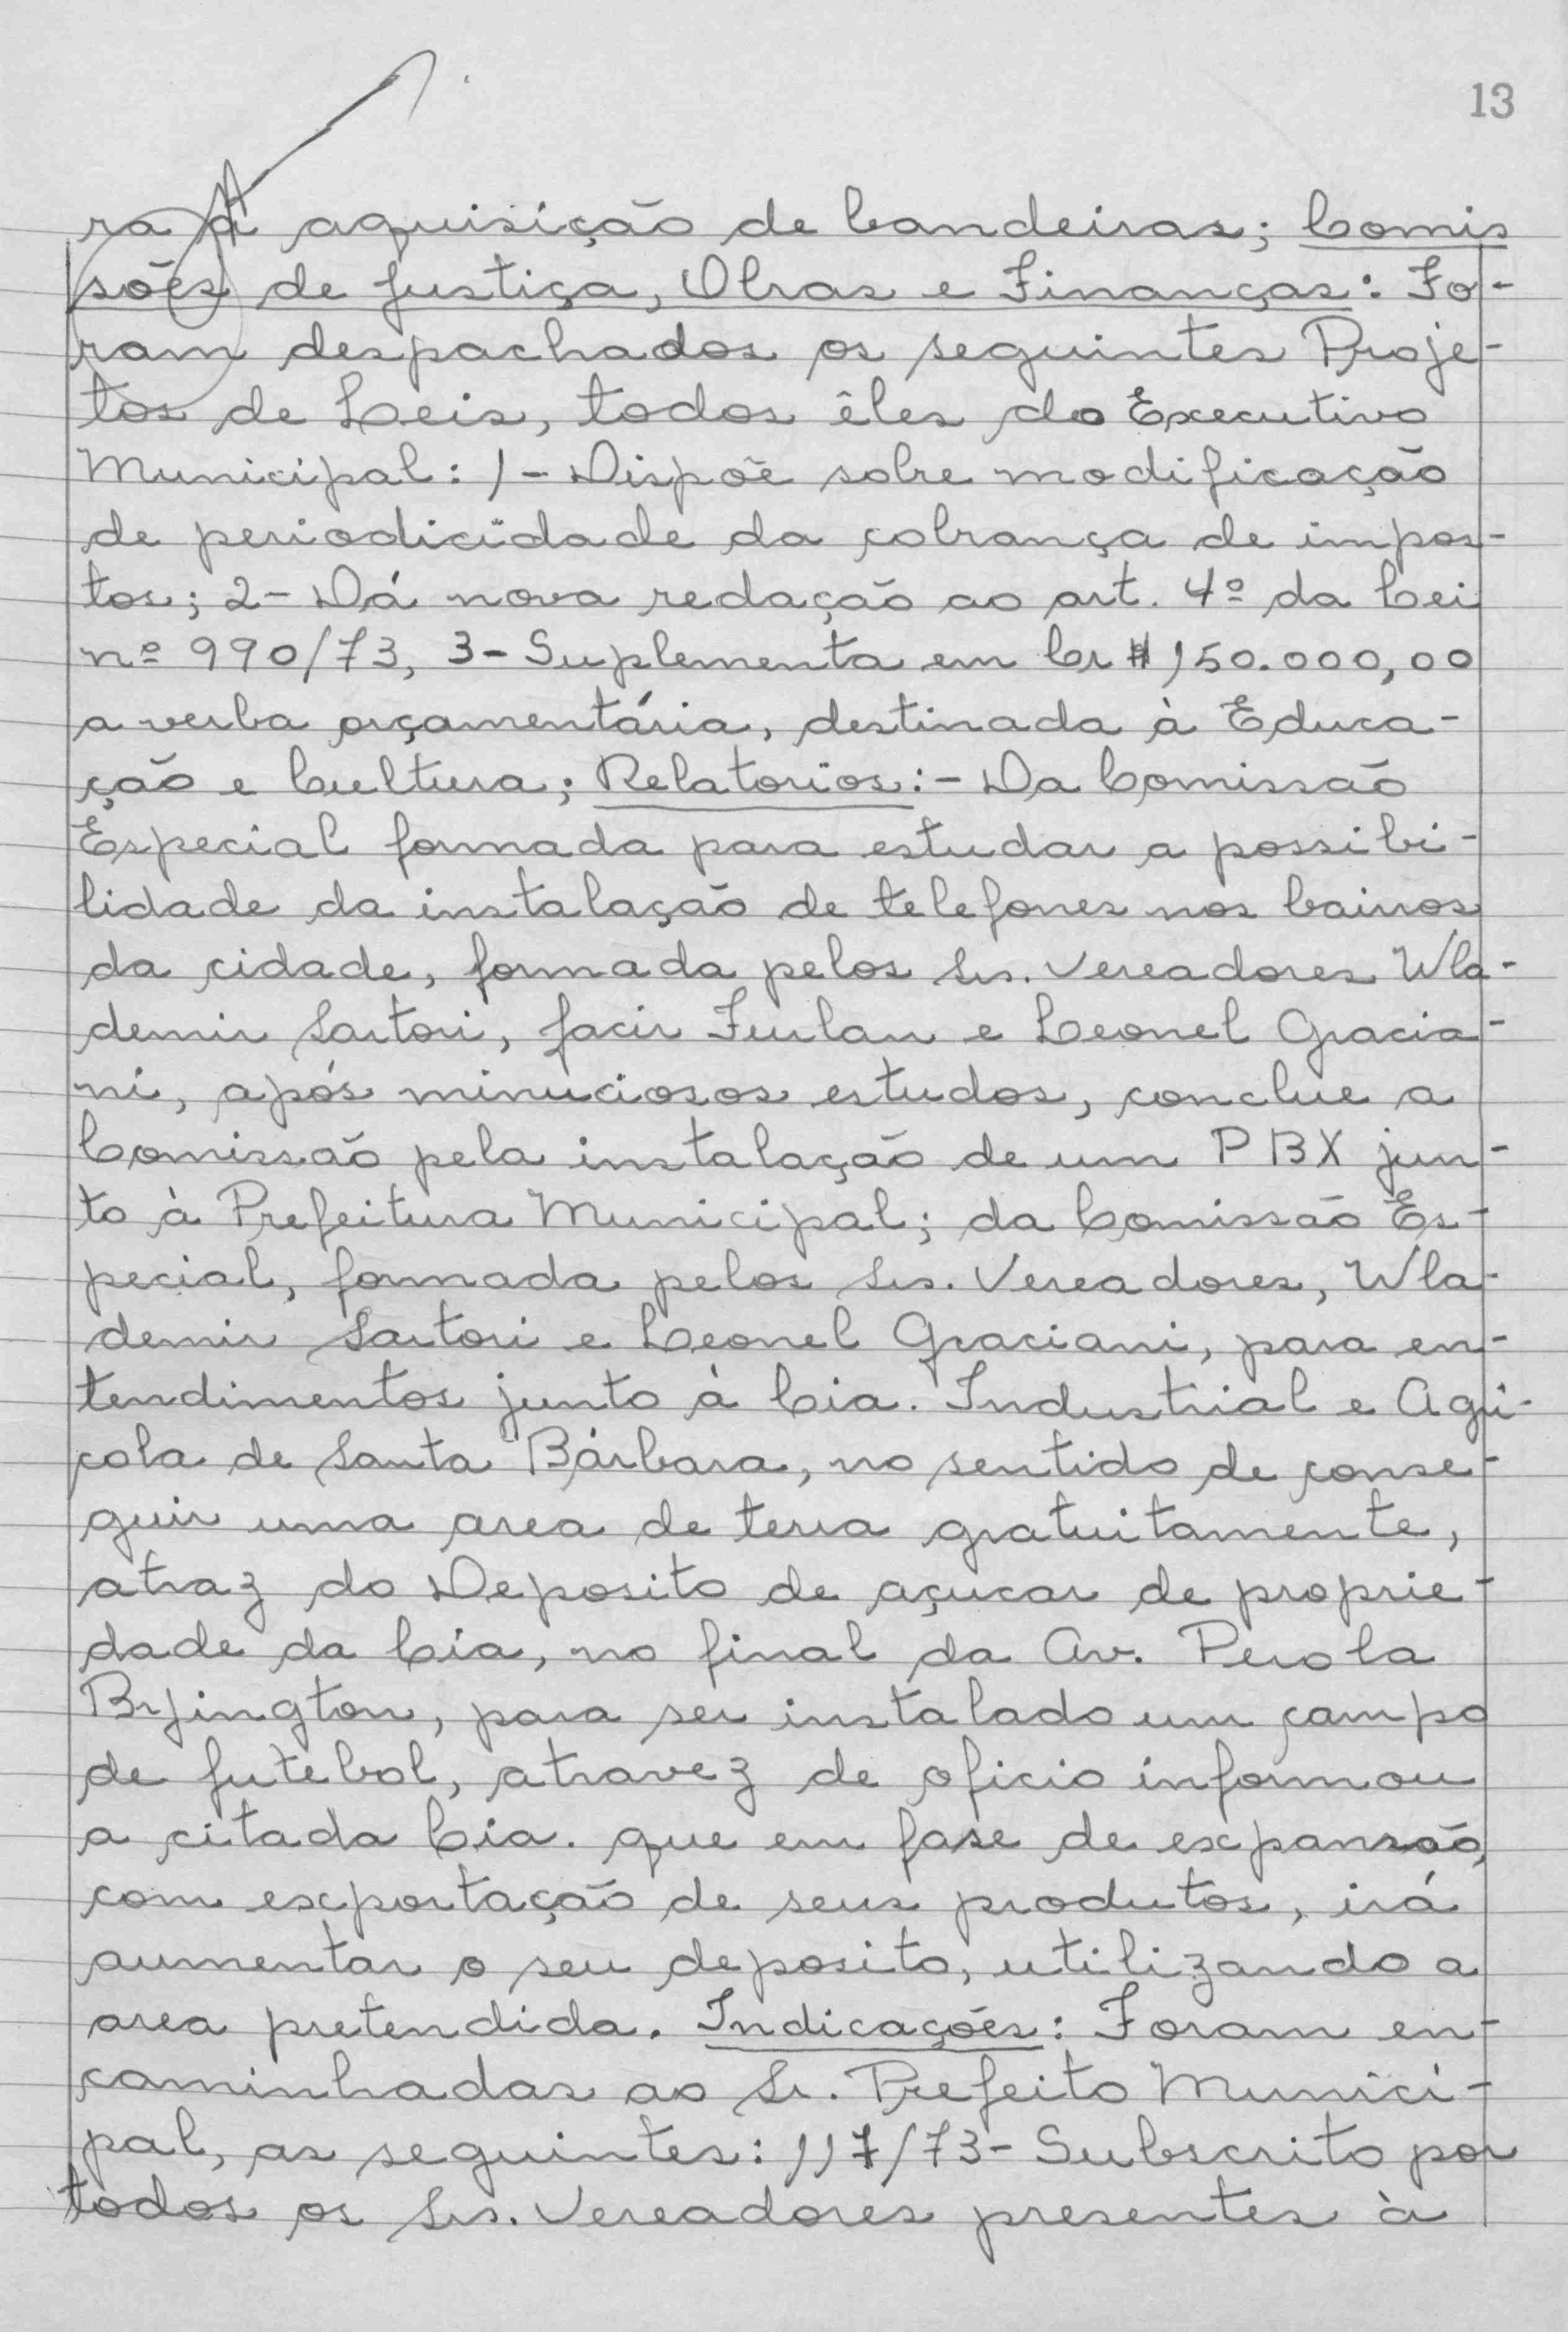 13
ra a aquisição de bandeiras; Comis
sões de Justiça, Obras e Finanças: Fo-
ram despachados os seguintes Proje-
tos de Leis, todos êles do Executivo
Municipal: 1- Dispõe sobre modificação
de periodicidade da cobrança de impos-
tos; 2- Dá nova redação ao art. 4º da Lei
nº 990/73, 3- Suplementa em Cr$ 150.000,00
a verba orçamentária, destinada à Educa-
ção e Cultura; Relatorios:- Da Comissão
Especial formada para estudar a possibi-
lidade da instalação de telefones nos bairros
da cidade, formada pelos Srs. Vereadores Wla-
demir Sartori, Jacir Furlan e Leonel Gracia-
ni, após minuciosos estudos, conclue a
Comissão pela instalação de um PBX jun-
to à Prefeitura Municipal; da Comissão Es-
pecial, formada pelos Srs. Vereadores, Wla-
demir Sartori e Leonel Graciani, para en-
tendimentos junto à Cia. Industrial e Agri-
cola de Santa Bárbara, no sentido de conse-
guir uma area de terra gratuitamente,
atraz do Deposito de açucar de proprie-
dade da Cia, no final da Av. Perola
Byington, para ser instalado um campo
de futebol, atravez de oficio informou
a citada Cia. que em fase de expansão,
com exportação de seus produtos, irá
aumentar o seu deposito, utilizando a
area pretendida. Indicações: Foram en-
caminhadas ao Sr. Prefeito Munici-
pal, as seguintes: 117/73- Subscrito por
todos os Srs. Vereadores presentes à